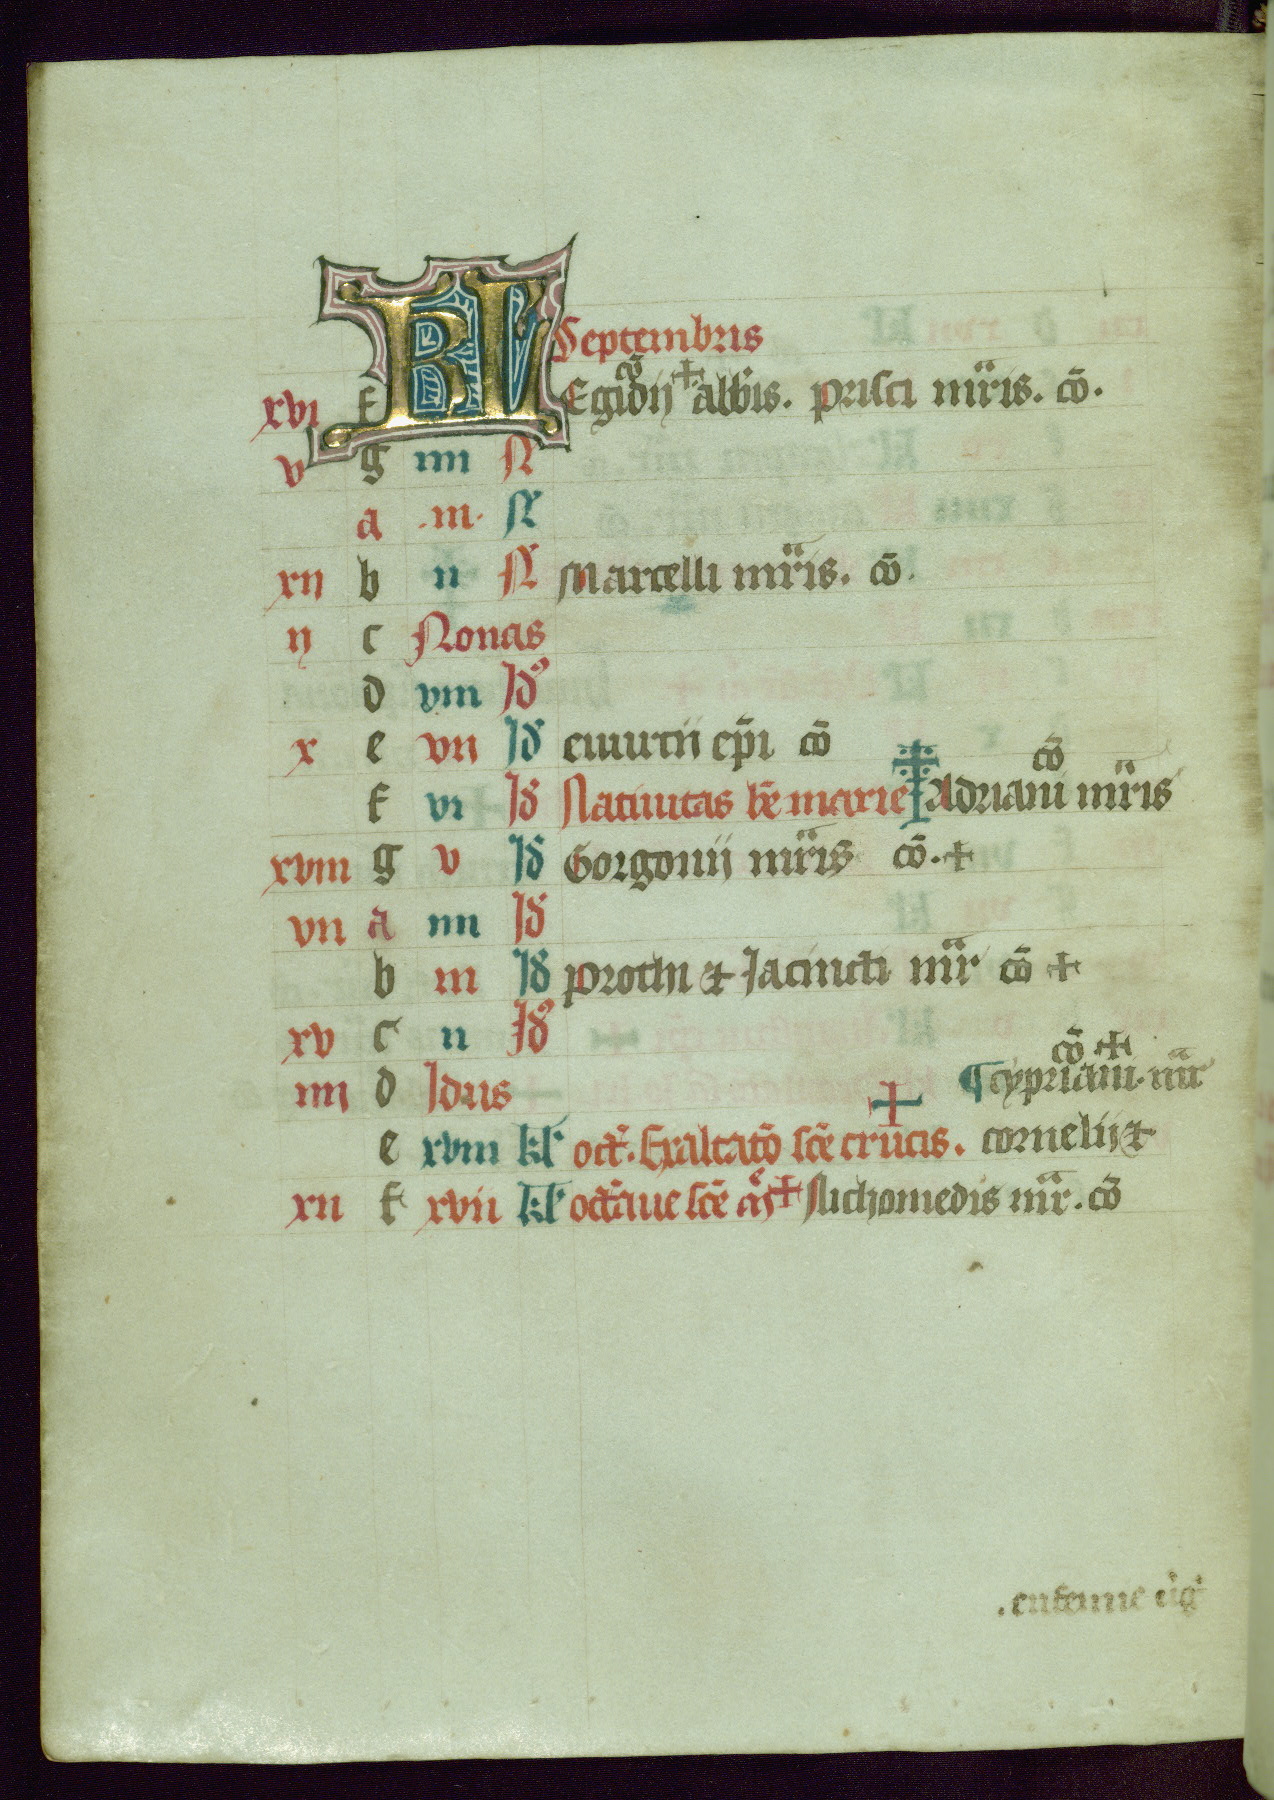 KL Septembris
xvi f Egidij cō + abb̄is. prisci mr̄is. cō.
v g iiii N
a .iii. N
xii b ii N Marcelli mr̄is. cō.
ij c Nonas
d viii Id
x e vii Id euurtii ep̄i cō
f vi Id Natiuitas bē marie Adriani mr̄is cō
xviii g v Id Gorgonij mr̄is cō. +
vii a iiii Id
b iii Id prothi & Jacincti mr̄ cō +
xv c ii Id
iiij d Idus ¶ cypriani. mr̄ cō +
e xviii kl oct. Exaltatō scē crucis. + cornelij &
xii f xvii kl octaue scē + Nichomedis mr̄. cō